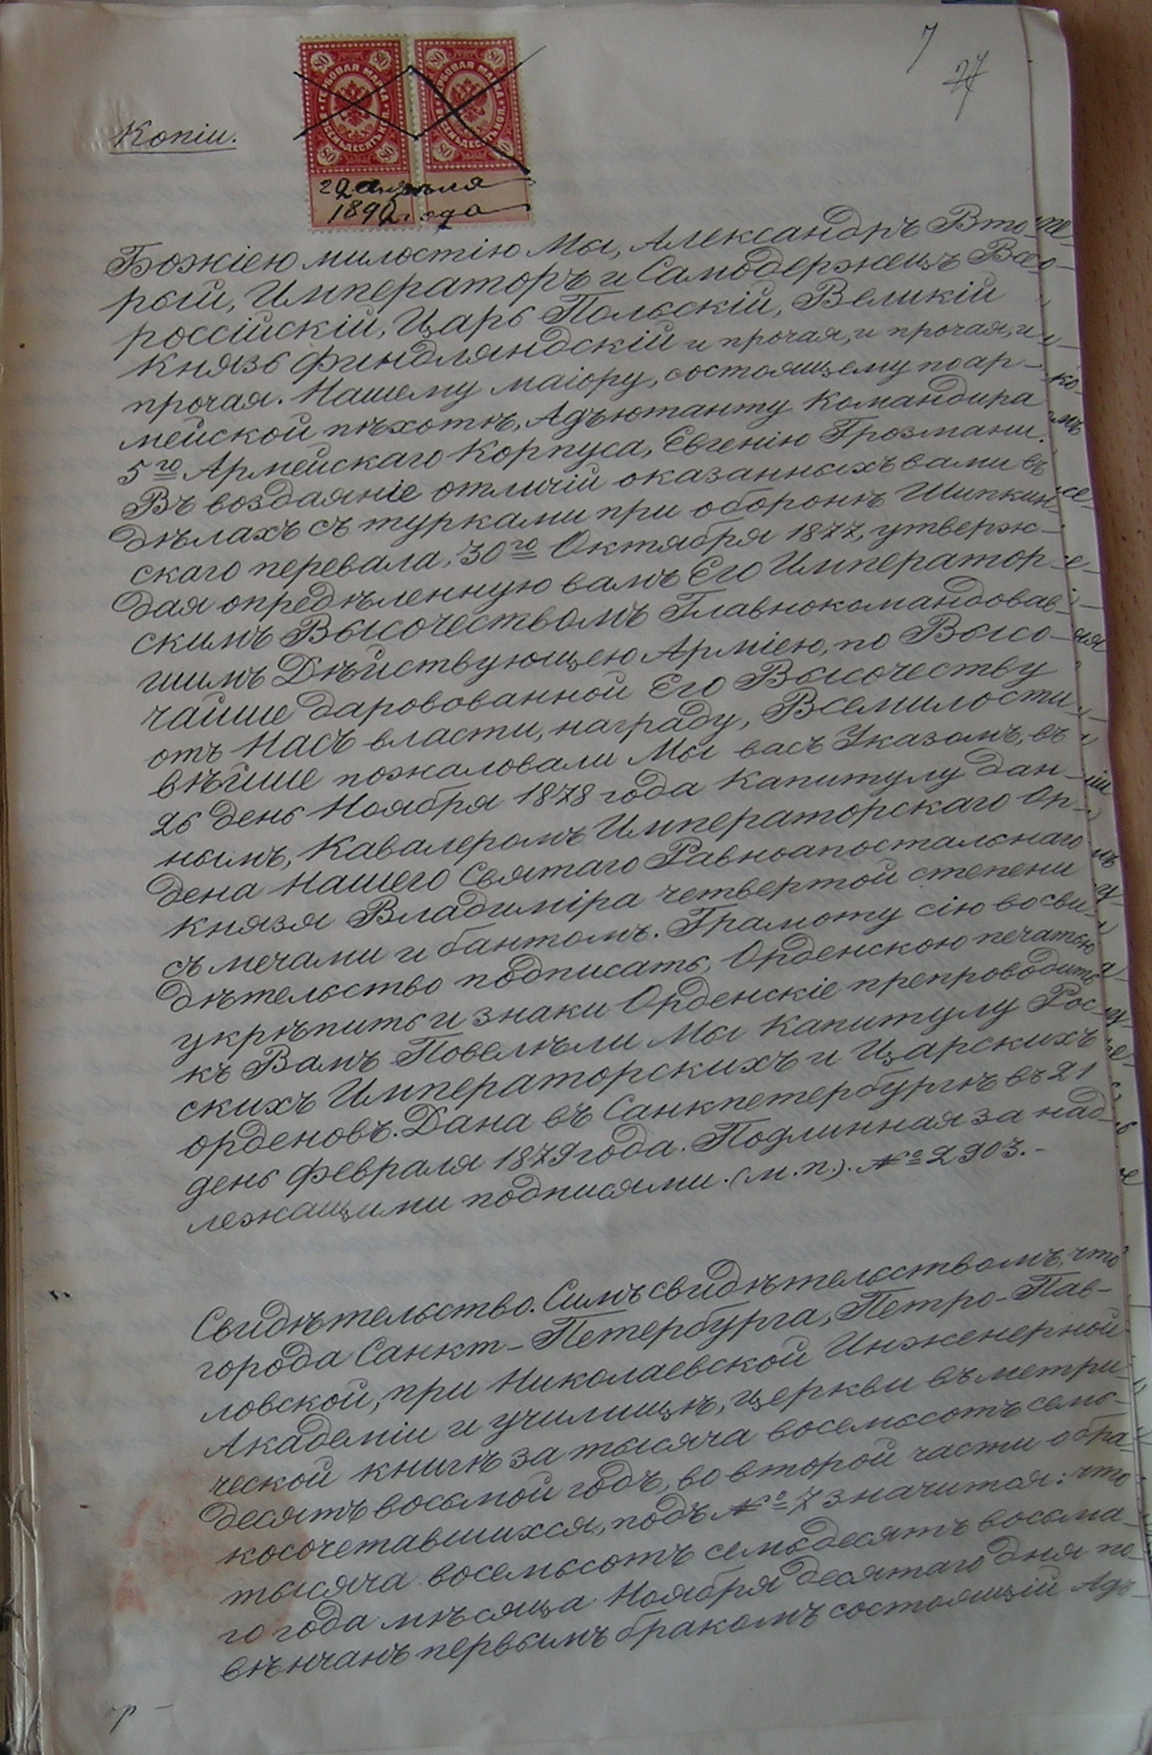 7
27
Копiи.
80 80 80 80
ГЕРБОВАЯ МАРКА
ВОСЕМЬДЕСЯТЪ КОП.
22 апрѣля
1892 года
Божiею милостiю Мы, Александръ Вто-
рый, Императоръ и Самодержецъ Все-
россiйскiй, Царь Польскiй, Великiй
Князь Финдляндскiй и прочая, и прочая, и
прочая. Нашему маiору, состоящему по ар-
мейской пѣхотѣ, Адъютанту Командира
5го Армейскаго Корпуса, Евгенiю Грозмани.
Въ воздаянiе отличiй оказанныхъ вами въ
дѣлахъ съ турками при оборонѣ Шипкин-
скаго перевала, 30го Октября 1877, утверж-
дая опредѣленную вамъ Его Император-
скимъ Высочествомъ Главнокомандовав-
шимъ Дѣйствующею Армiею, по Высо-
чайше дарованной Его Высочеству
отъ Насъ власти, награду, Всемилости-
вѣйше пожаловали Мы васъ Указомъ, въ
26 день Ноября 1878 года Капитулу дан-
нымъ, Кавалеромъ Императорскаго Ор-
дена Нашего Святаго Равноапостольнаго
Князя Владимiра четвертой степени
съ мечами и бантомъ. Грамоту сiю во сви-
дѣтельство подписать, Орденскою печатью
укрѣпить и знаки Орденскiе препроводить
къ Вамъ Повелѣли Мы Капитулу Рос-
скихъ Императорскихъ и Царскихъ
орденовъ. Дана въ Санкпетербургѣ въ 21
день февраля 1879 года. Подлинная за над-
лежащими подписями. (м.п.). № 2903.-
Свидѣтельство. Симъ свидѣтельствомъ, что
города Санкт-Петербурга, Петро-Пав-
ловской, при Николаевской Инженерной
Академiи и училищѣ, церкви въ метри-
ческой книгѣ за тысяча восемьсотъ семь-
десятъ восьмой годъ, во второй части о бра-
косочетавшихся, подъ № 7 значится: что
тысяча восемьсотъ семьдесятъ восьма-
го года мѣсяца Ноября десятаго дня по-
вѣнчанъ первымъ бракомъ состоящiй Адъ-